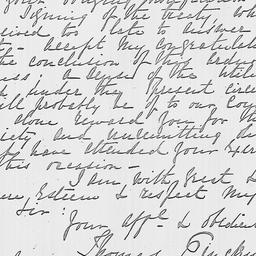 Signing of the treaty, wh
ceived too late to answer
accept my congratulat
the conclusion of this ardu
ness, a copy of the
under my present circu
ill probably be of to our Coun
alone reward you for th
iety and unremitting de
have attended your exer
this occasion -
I am, with great &
ere, Esteem & respect my
Sir:
Your affe. & obedien
Thomas Pinckn